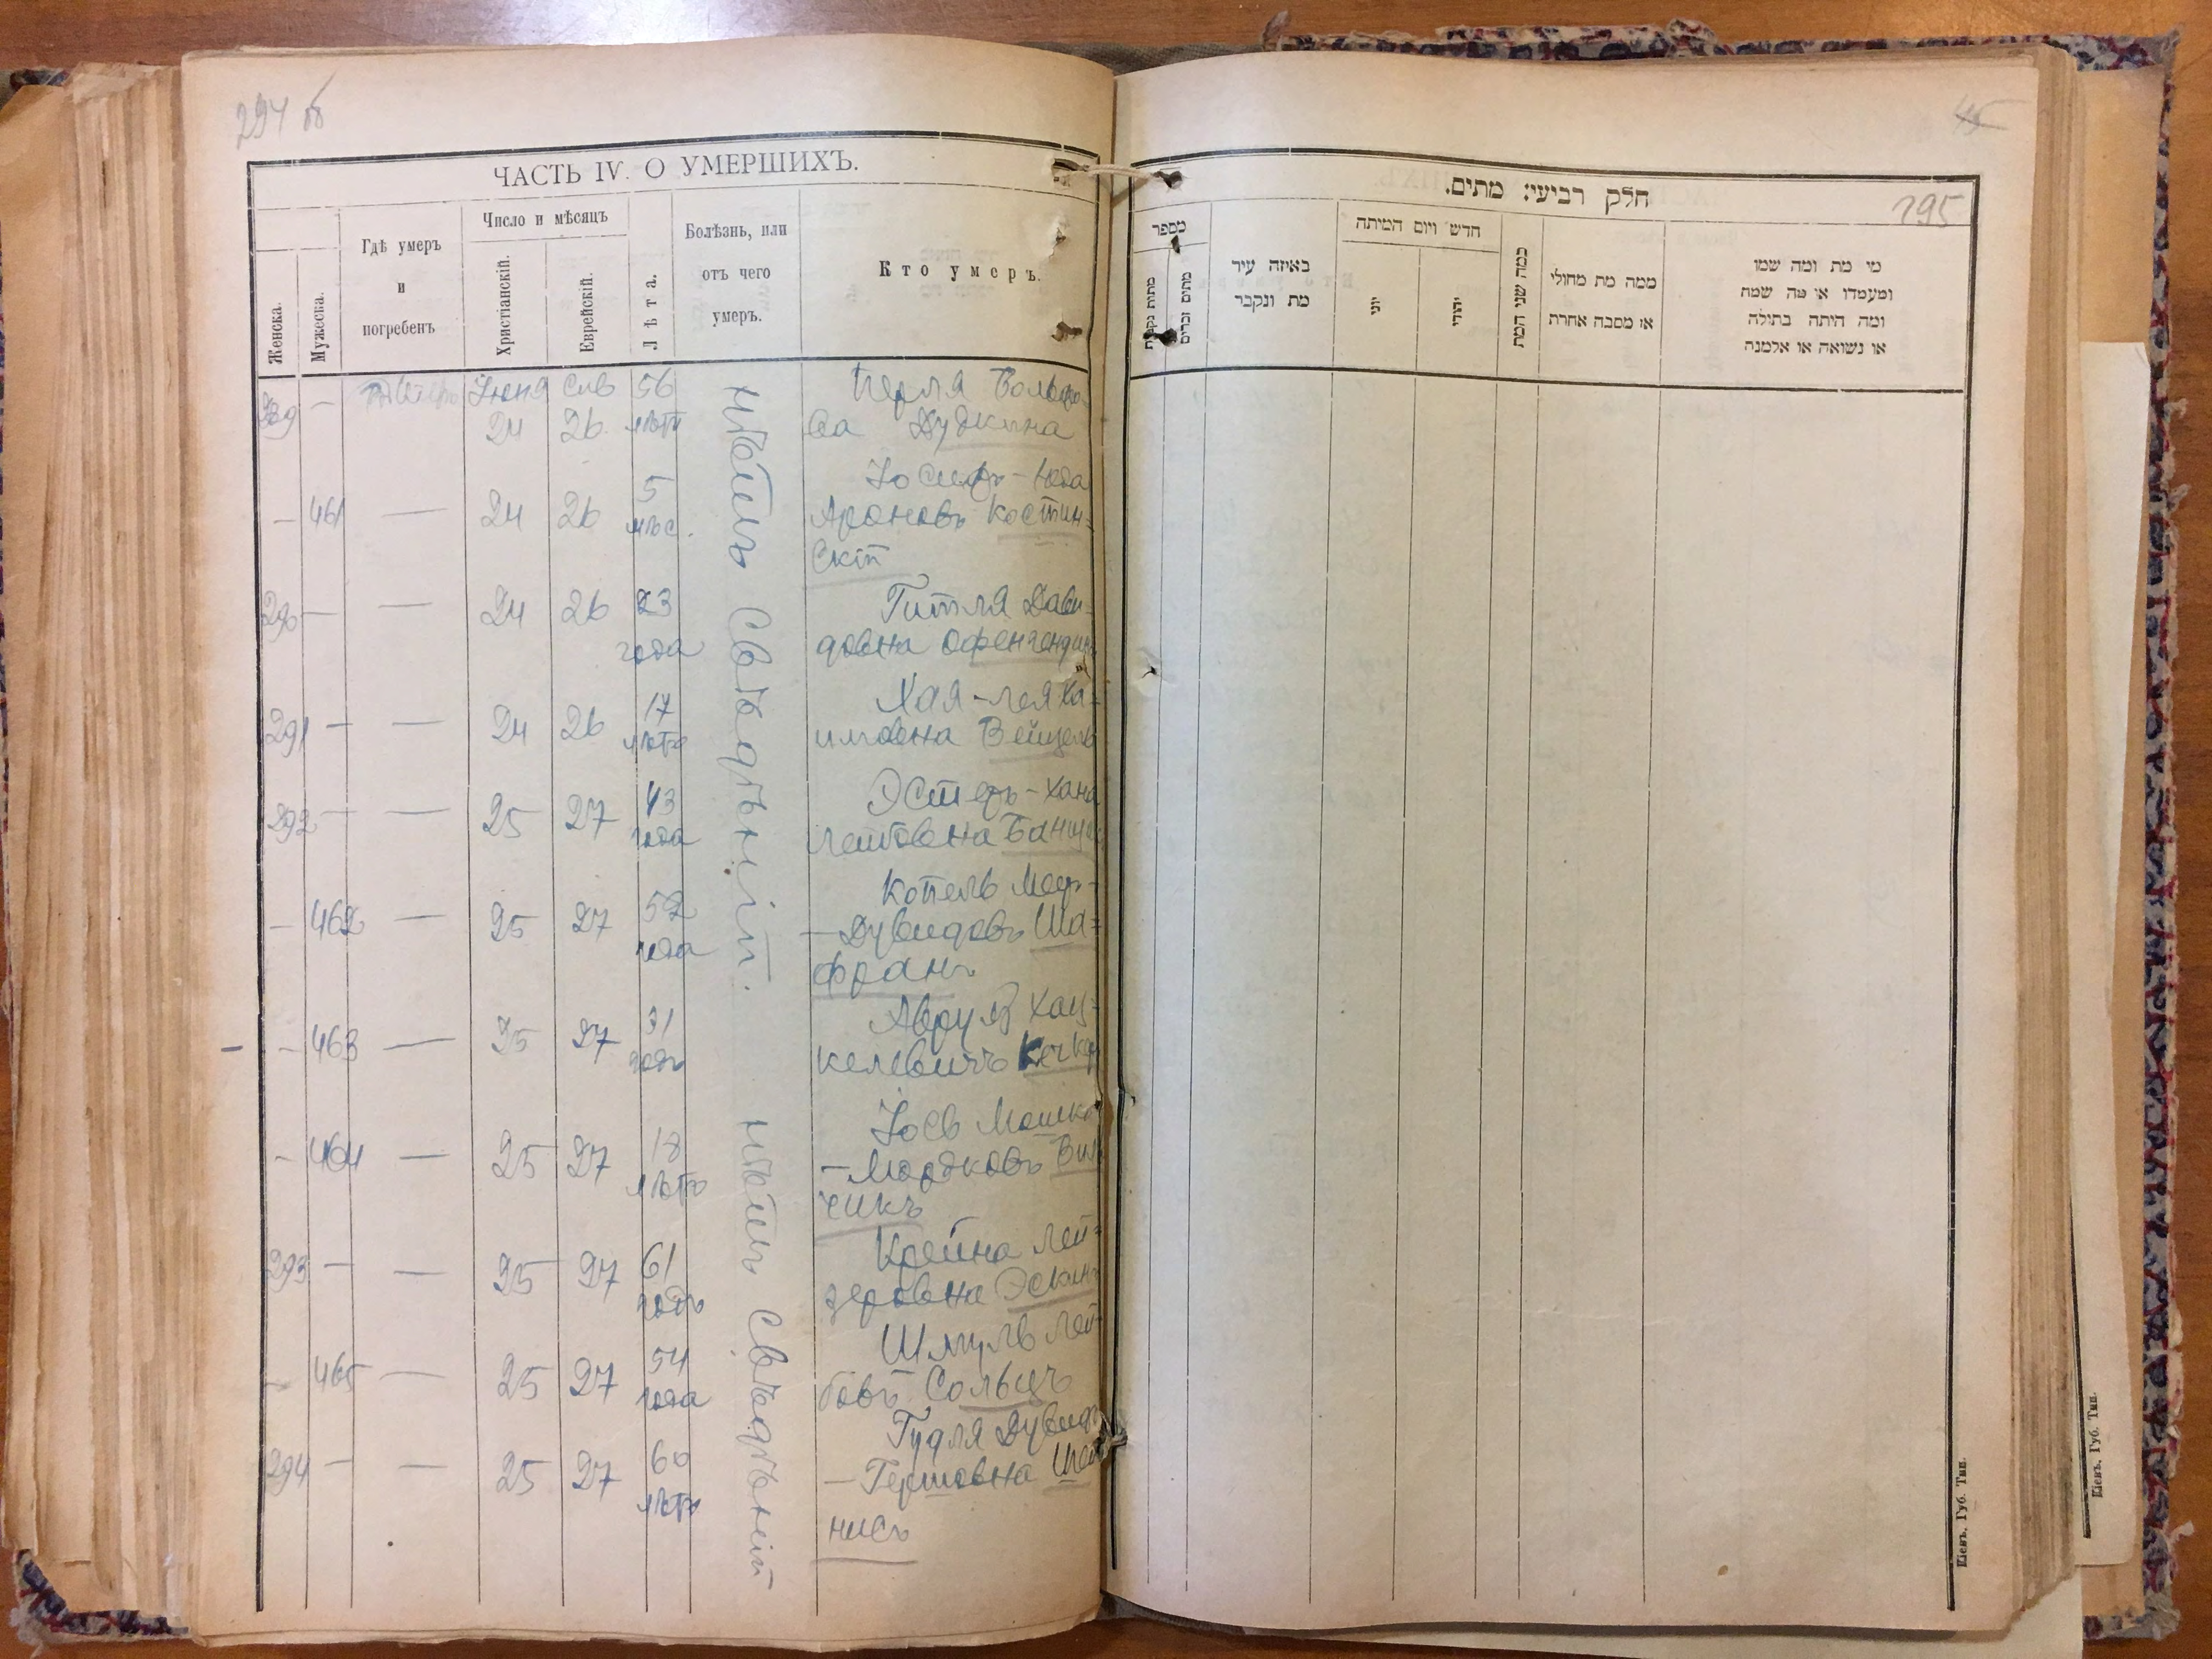 294 об
ЧАСТЬ IV. О УМЕРШИХЪ.
Женска.
Мужеска.
Гдѣ умеръ
и
погребенъ
Число и мѣсяцъ
Христіанскій.
Еврейскій.
Лѣта.
Болѣзнь, или
отъ чего
умеръ.
Кто умеръ.
289 — Іюня Сив 56 Перля Вольфо-
24 26 лѣтъ ва Дудкина
Іосифъ-Юда
— 461 — 24 26 5 мѣс. Ароновъ Костин-
скій
290 — — 24 26 23 Гитля Дави-
года довна Офенгенд
291 — — 24 26 17 Хая-Лея Ха-
лѣтъ имовна Вейцель
292 — — 25 27 43 Эстеръ-Хана
года Лейбовна
Копель Меер-
— 462 — 25 27 52 —Дувидовъ Ша-
года франъ
— 463 — 25 27 31 Аврумъ Хац-
годъ келевичъ
Іось Мошко
— 464 — 25 27 18 —Мордковъ
лѣтъ чикъ
293 — — 25 27 61 Крейна Лей-
годъ зеровна Эскинъ
— 465 — 25 27 54 Шмуль Лей-
года бовъ Сольцъ
Гудля Дувидъ
294 — — 25 27 60 —Гершовна
лѣтъ нисъ
нѣтъ свѣдѣній.
нѣтъ свѣдѣній
295
חלק רביעי: מתים.
מספר
מתות נקבות
מתים זכרים
באיזה עיר
מת ונקבר
חדש ויום המיתה
יוני
יהודי
כמה שני המת
ממה מת מחולי
או מסבה אחרת
מי מת ומה שמו
ומעמדו או מה שמה
ומה היתה בתולה
או נשואה או אלמנה
Кіевъ, Губ. Тип.
Кіевъ, Губ. Тип.